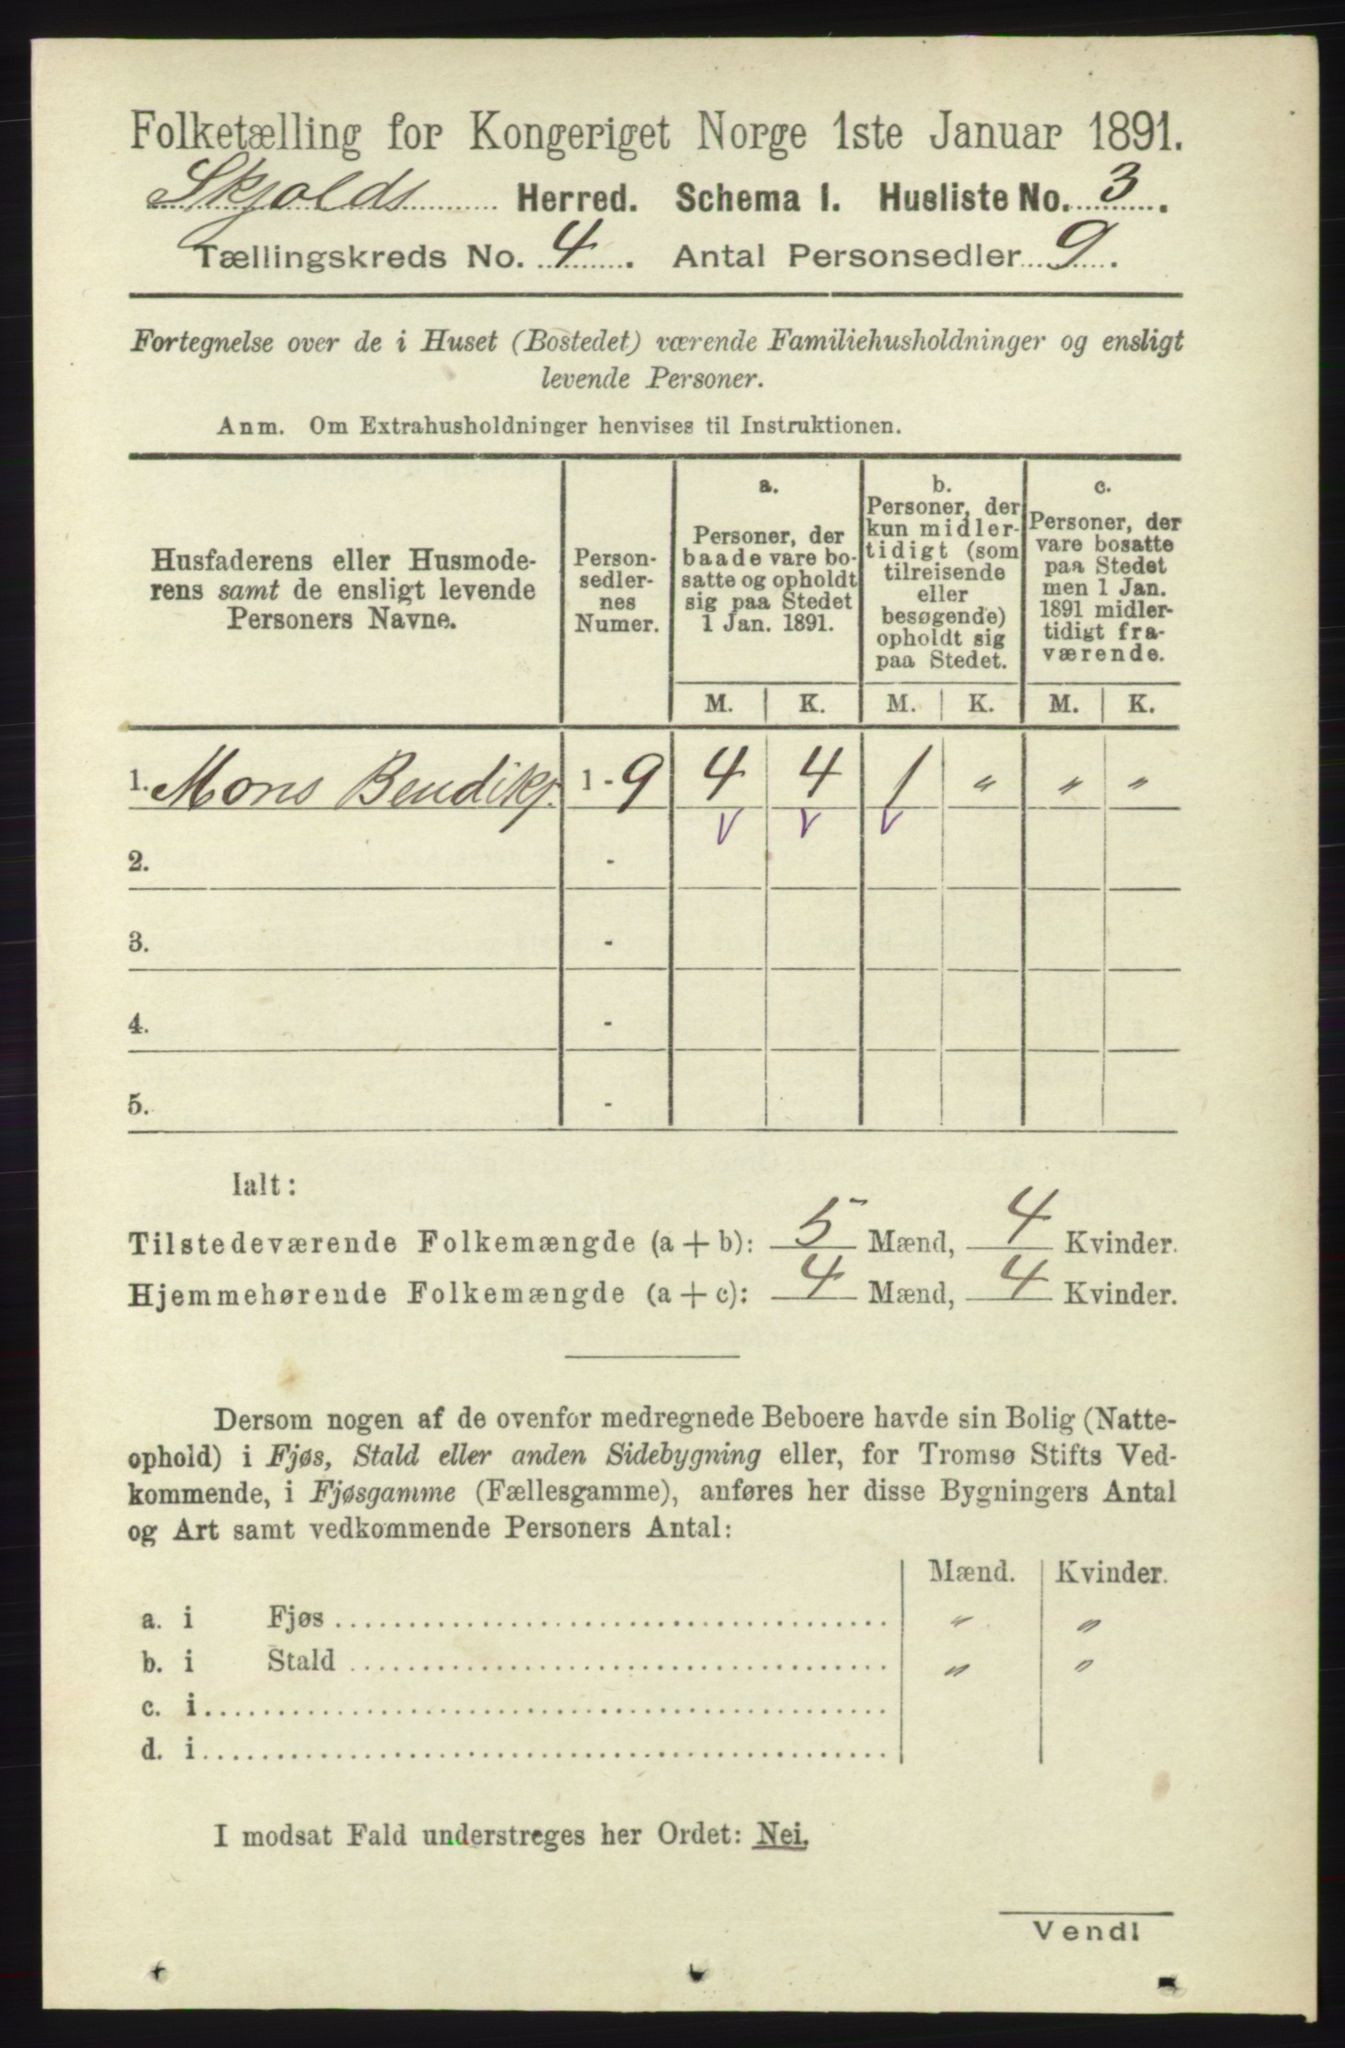 Folketælling for Kongeriget Norge 1ste Januar 1891.
Skjolds Herred. Schema I. Husliste No. 3.
Tællingskreds No. 4. Antal Personsedler 9.
Fortegnelse over de i Huset (Bostedet) værende Familiehusholdninger og ensligt
levende Personer.
Anm. Om Extrahusholdninger henvises til Instruktionen.
Husfaderens eller Husmode-
rens samt de ensligt levende
Personers Navne.
Person-
sedler-
nes
Numer.
a.
Personer, der
baade vare bo-
satte og opholdt
sig paa Stedet
1 Jan. 1891.
b.
Personer, der
kun midler-
tidigt (som
tilreisende
eller
besøgende)
opholdt sig
paa Stedet.
c.
Personer, der
vare bosatte
paa Stedet
men 1 Jan.
1891 midler-
tidigt fra-
værende.
M. K. M. K. M. K.
1. Mons Bendiks. 1-9 4 4 1 " " "
2. -
3. -
4. -
5. -
Ialt:
Tilstedeværende Folkemængde (a + b): 5 Mænd, 4 Kvinder.
Hjemmehørende Folkemængde (a + c): 4 Mænd, 4 Kvinder.
Dersom nogen af de ovenfor medregnede Beboere havde sin Bolig (Natte-
ophold) i Fjøs, Stald eller anden Sidebygning eller, for Tromsø Stifts Ved-
kommende, i Fjøsgamme (Fællesgamme), anføres her disse Bygningers Antal
og Art samt vedkommende Personers Antal:
Mænd. Kvinder.
a. i Fjøs " "
b. i Stald " "
c. i
d. i
I modsat Fald understreges her Ordet: Nei.
Vendl